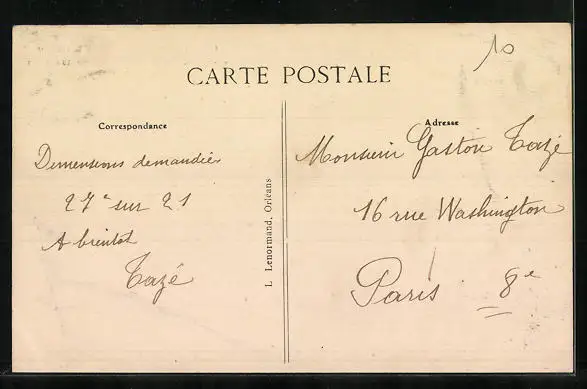 10
CARTE POSTALE
Correspondance
Dimensions demandées
27 sur 21
A bientôt
Tazé
L Lenormand, Orléans
Adresse
Monsieur Gaston Tazé
16 rue Washington
Paris 8e